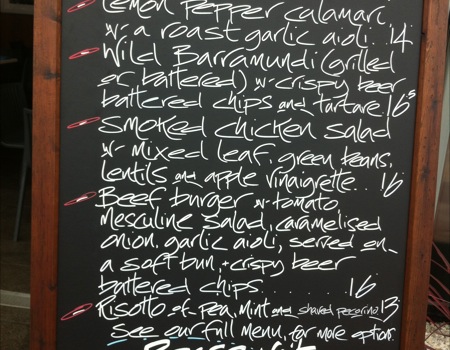 Lemon Pepper calamari
w- a roast garlic aioli..14
Wild Barramundi (grilled
or battered) w- crispy beer
battered chips and tartare 16.5
Smoked chicken salad
w- mixed leaf, green beans,
lentils and apple vinaigrette.. 16
Beef burger w- tomato
mesculine salad, caramelised
onion, garlic aioli, served on
a soft bun, + crispy beer
battered chips.......... 16
Risotto of- pea, mint and shaved pecorino 13
See our full menu, for more options